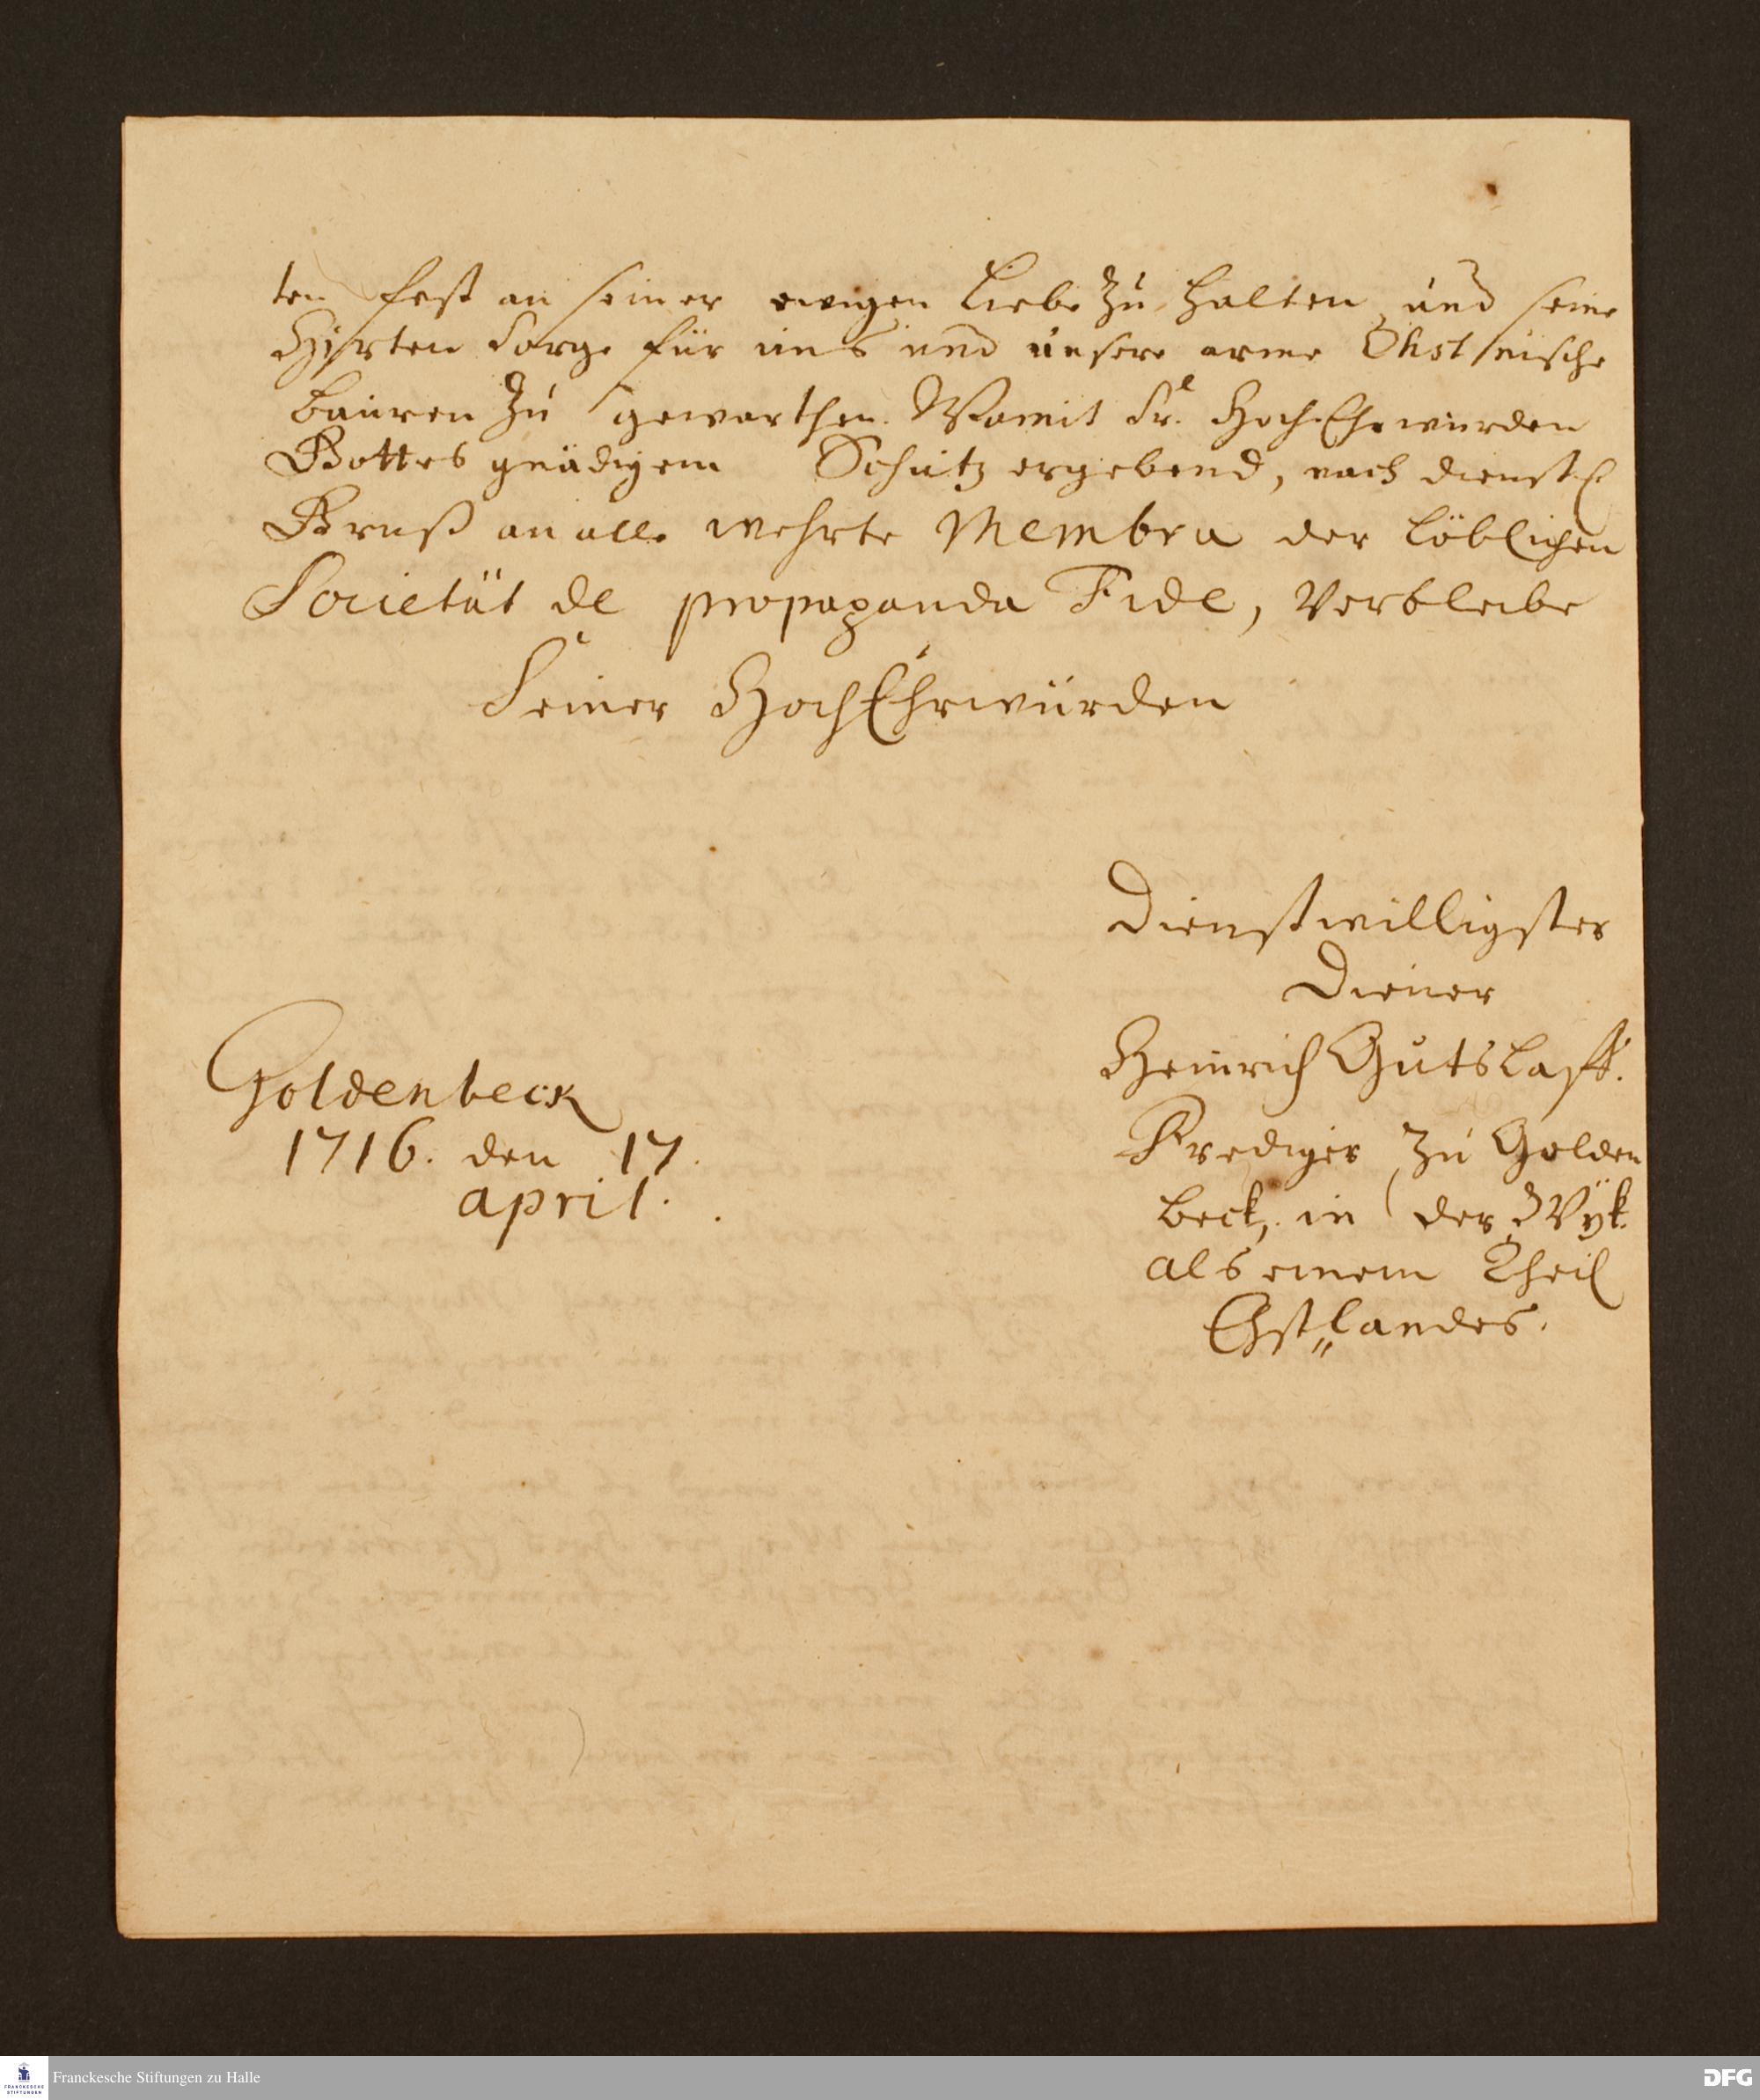 ten fest an seiner ewigen Liebe zu halten, und seine
Hirten Sorge für uns und unsere arme Ehstnische
Bauren zu gewarthen. Womit Sr. HochEhrwürden
Gottes gnädigem Schutz ergebend, nach dienstl.
Gruß an alle wehrte Membra der löblichen
Societät de propaganda Fide, verbleibe
Seiner HochEhrwürden
Dienstwilligster
Diener
Heinrich Gutslaff.
Prediger zu Golden
beck, in der Wÿk.
als einem Theil
Ehstlandes.
Goldenbeck
1716. den 17.
april.
Franckesche Stiftungen zu Halle
DFG